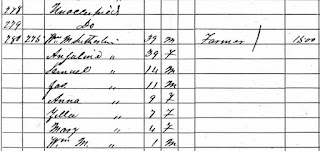 278 Unoccupied
279 Do
280 275 Wm M 39 M Farmer / 1500
Angeline " 39 F
Samuel " 14 M
Jas " 11 M
Anna " 9 F
Zilla " 7 F
Mary " 4 F
Wm M. " 1 M